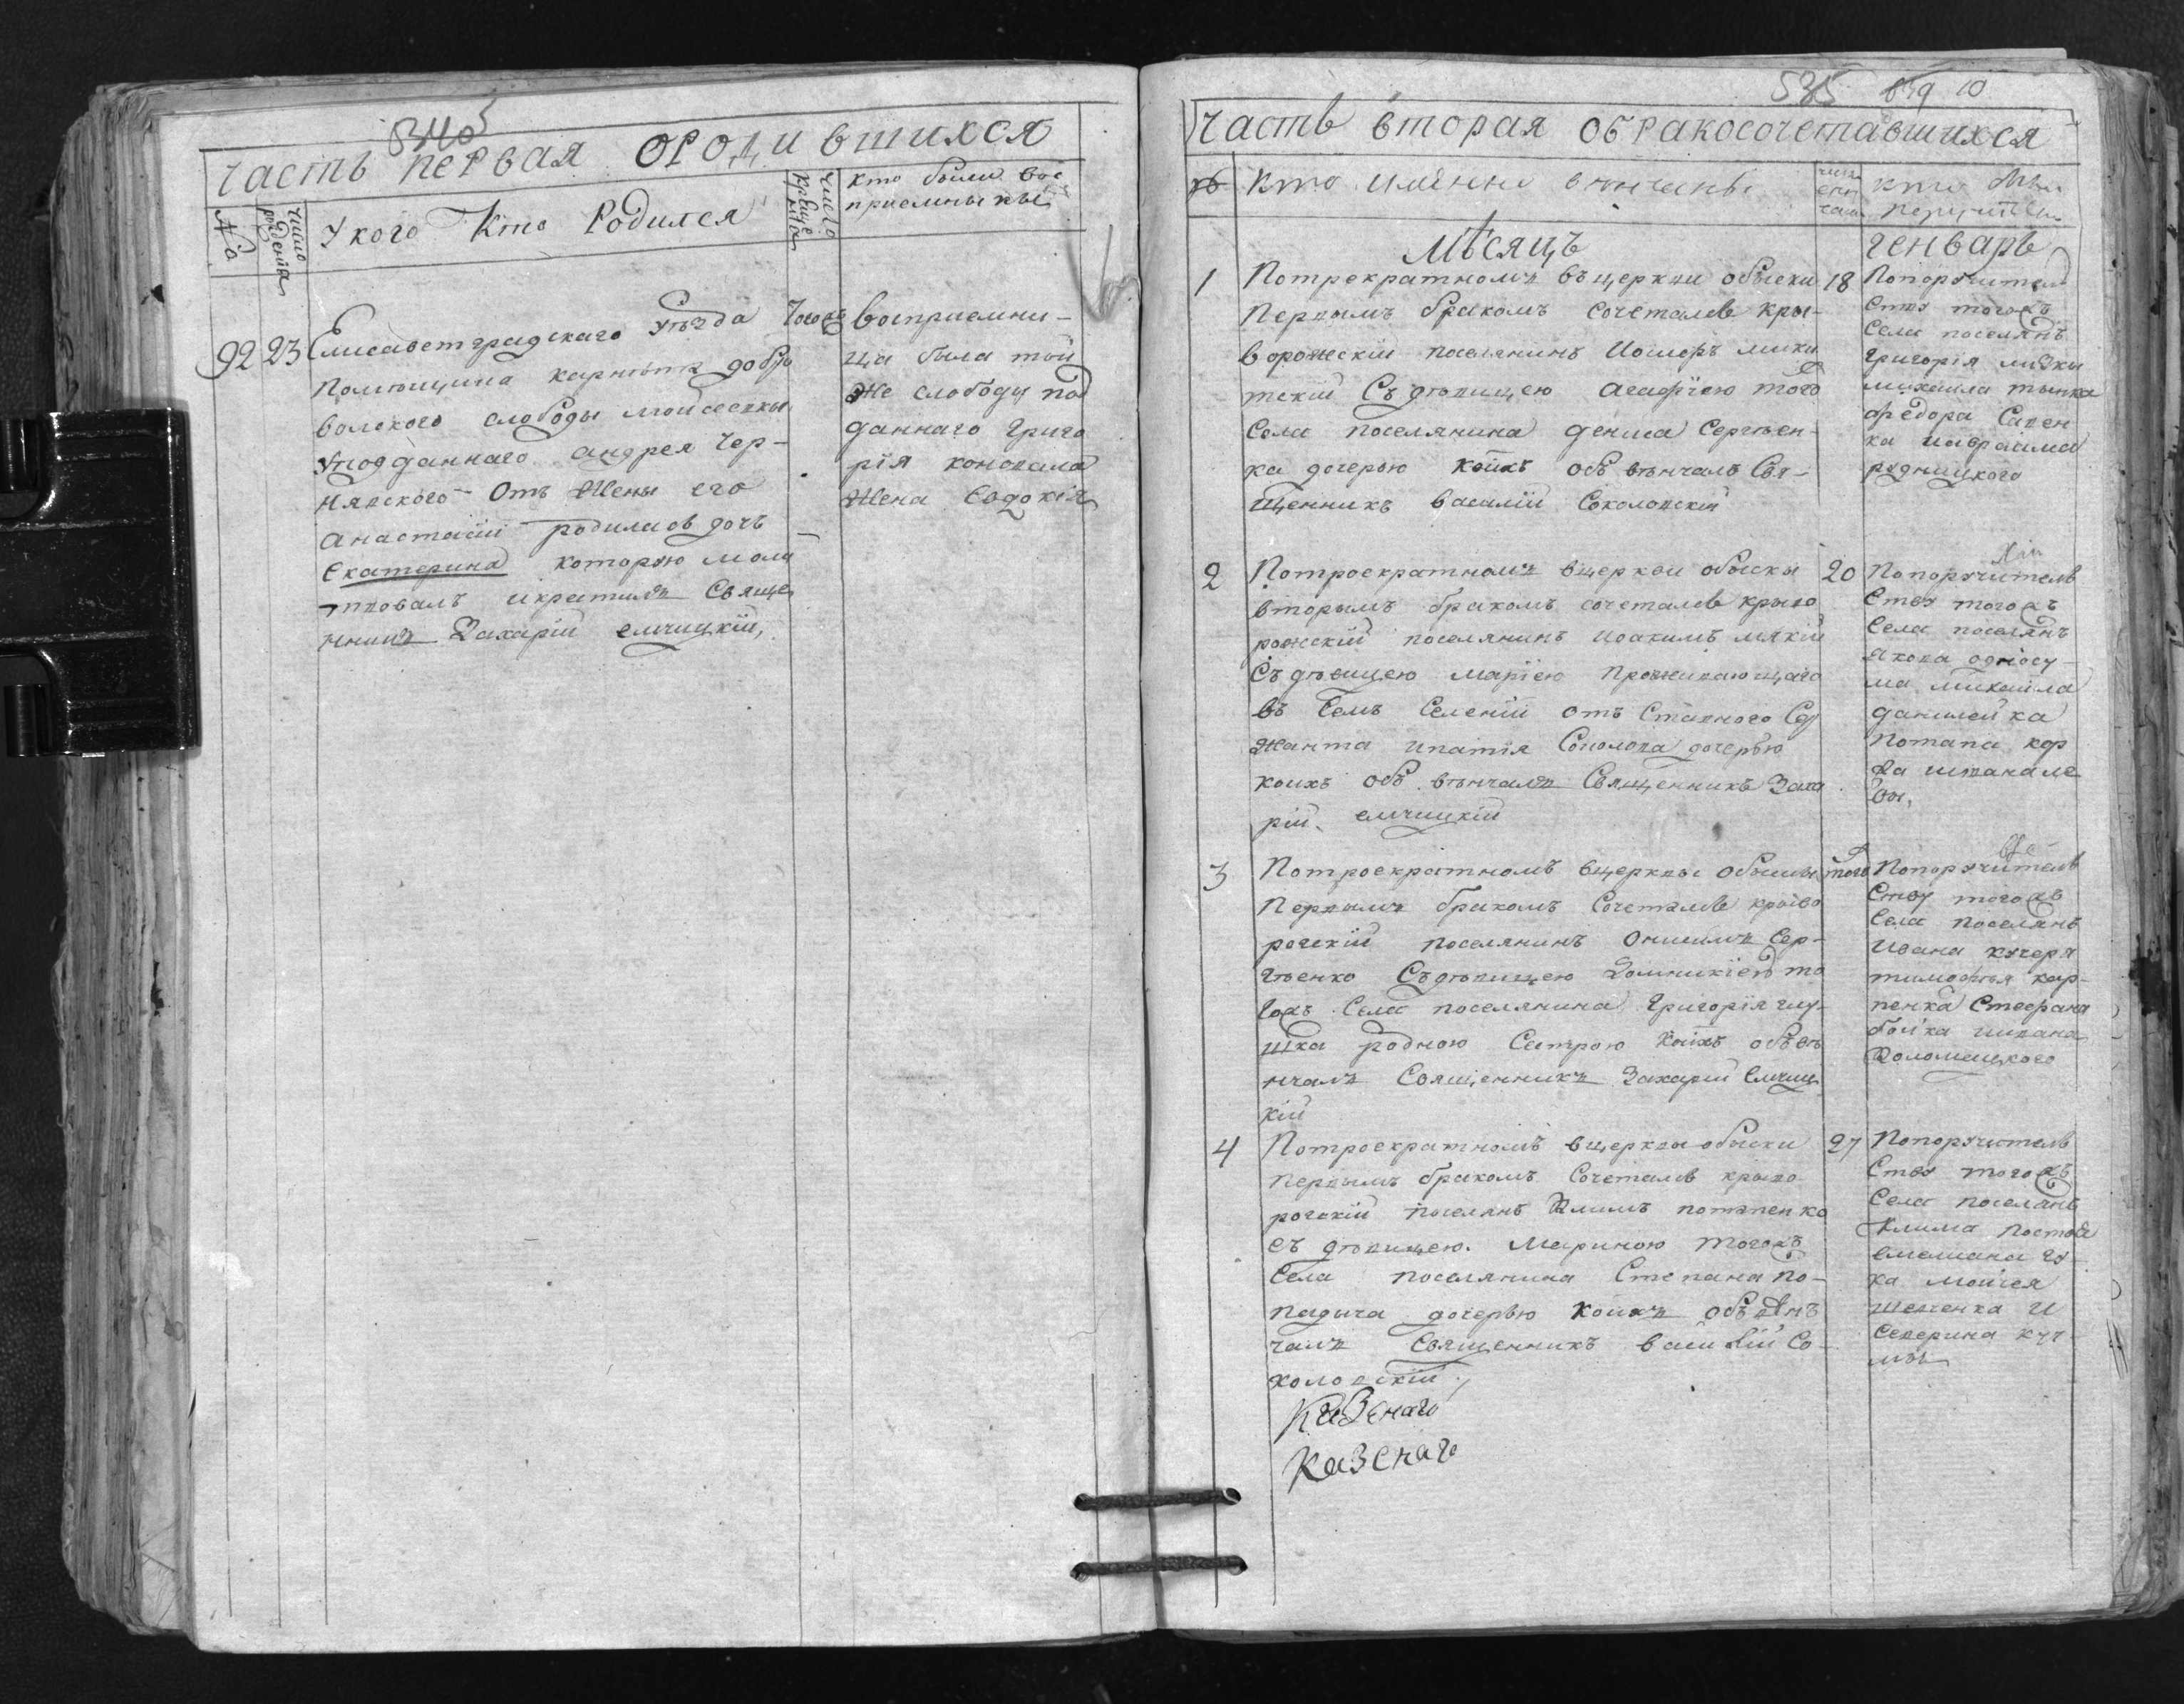 5340
Часть первая ородившихся
№
число рождения
У кого Кто Родился
число крещения
кто были вос
приемники
92 23 Елисаветградскаго Уезда
Помещика добро
волского слободы Мойсеевки
подданнаго андрея Чер-
нявского Отъ Жены его
анастасіи родилась дочь
Екатерина которую моли
твовалъ икрестилъ Свяще
нникъ Захарій емчицкій,
Тогожъ
Восприемни-
ца была той
Же слободы под
даннаго Григо
рія коновала
Жена Евдокія
535 10
Часть вторая обракосочетавшихся
№ Кто имянно венчаны
кто были
поручители
Мѣсяцъ Генварь
1 Потрекратномъ въцеркви обыски 18
Первымъ бракомъ сочетался кри-
ворожскій поселянинъ
Съ дѣвицею агафіею того
Села поселянина дениса Сергѣен-
ка дочерью коихъ объ вѣнчалъ Свя-
щенникъ василій Соколовскій
Попоручитель
Ству тогожъ
Села поселянъ
Григорія
михаила
федора Савен
ка иавраама
рудницкого
2 Потроекратномъ вцеркви обыски 20
вторымъ бракомъ сочетался криво
рожскій поселянинъ иоакимъ мякій
Съ дѣвицею маріею проживающаго
въ Семъ Селеніи отъ Ставного Сер
жанта ипатія Соколова дочерью
коихъ объ вѣнчалъ Священникъ Заха
рій емчицкій
Попоручитель
Ству тогожъ
Села поселянъ
Якова односу-
ма михаила
данилейка
Потапа кор
3 Потроекратномъ вцеркви обыски того
Первымъ бракомъ Сочетался криво
рогскій поселянинъ Онисимъ Сер-
гѣенко Съдѣвицею Домникіею то
гожъ Села поселянина Григорія глу-
шка родною Сестрою коихъ объвѣ
нчалъ Священникъ Захарій Емчиц
кій
Попоручитель
Ству тогожъ
Села поселянъ
Ивана кучеря
тимофѣя кар-
пенка Стефана
бойка иивана
Коломацкого
4 Потроекратномъ вцеркви обыски 27
первымъ бракомъ Сочетался криво
рогскій поселянъ Климъ потапенко
съ дѣвицею Мариною тогожъ
Села поселянина Степана по-
падича дочерью коихъ объвѣн
чалъ Священникъ василій Со-
коловскій
Попоручитель
Ству тогожъ
Села поселянъ
Клима
емелиана гу
ка мойсея
шевченка и
Северина куч
мы
Казенаго
Казенаго